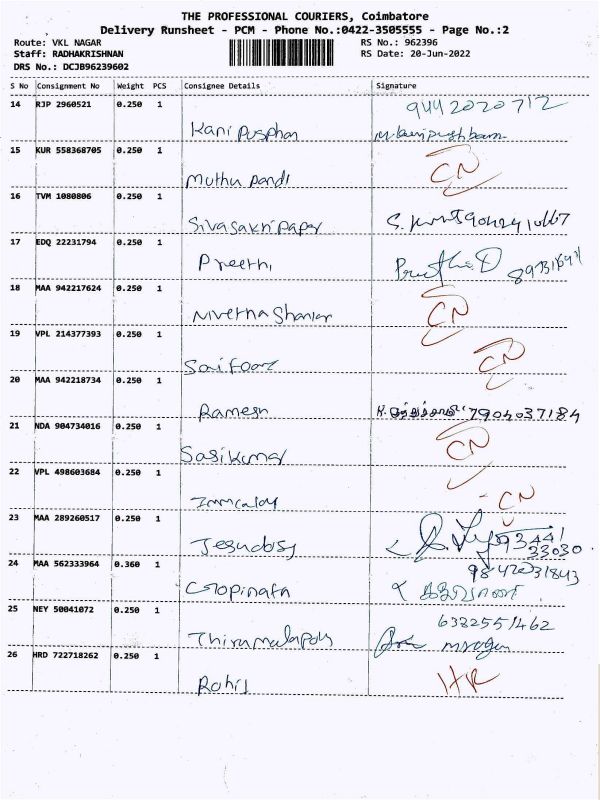 THE PROFESSIONAL COURIERS, Coimbatore
Delivery Runsheet - PCM - Phone No.:0422-3505555 - Page No.:2
Route: VKL NAGAR RS No.: 962396
Staff: RADHAKRISHNAN RS Date: 20-Jun-2022
DRS No.: DCJB96239602
S No Consignment No Weight PCS Consignee Details Signature
14 RJP 2960521 0.250 1 9442020712
Kani Pusphan
15 KUR 558368705 0.250 1 CN
Muthu Pandi
16 TVM 1080806 0.250 1
Sivasakti paper
17 EDQ 22231794 0.250 1
Preethi
18 MAA 942217624 0.250 1 CN
Nivetha Shankar
19 VPL 214377393 0.250 1 CN
20 MAA 942218734 0.250 1
Ramesh 7904037184
21 NDA 904734016 0.250 1 CN
Sasikumar
22 VPL 498603684 0.250 1 CN
23 MAA 289260517 0.250 1 93441
Jesudosy 33030
24 MAA 562333964 0.360 1 9842031843
Gopinath
25 NEY 50041072 0.250 1 6382551462
26 HRD 722718262 0.250 1 HR
Rohit